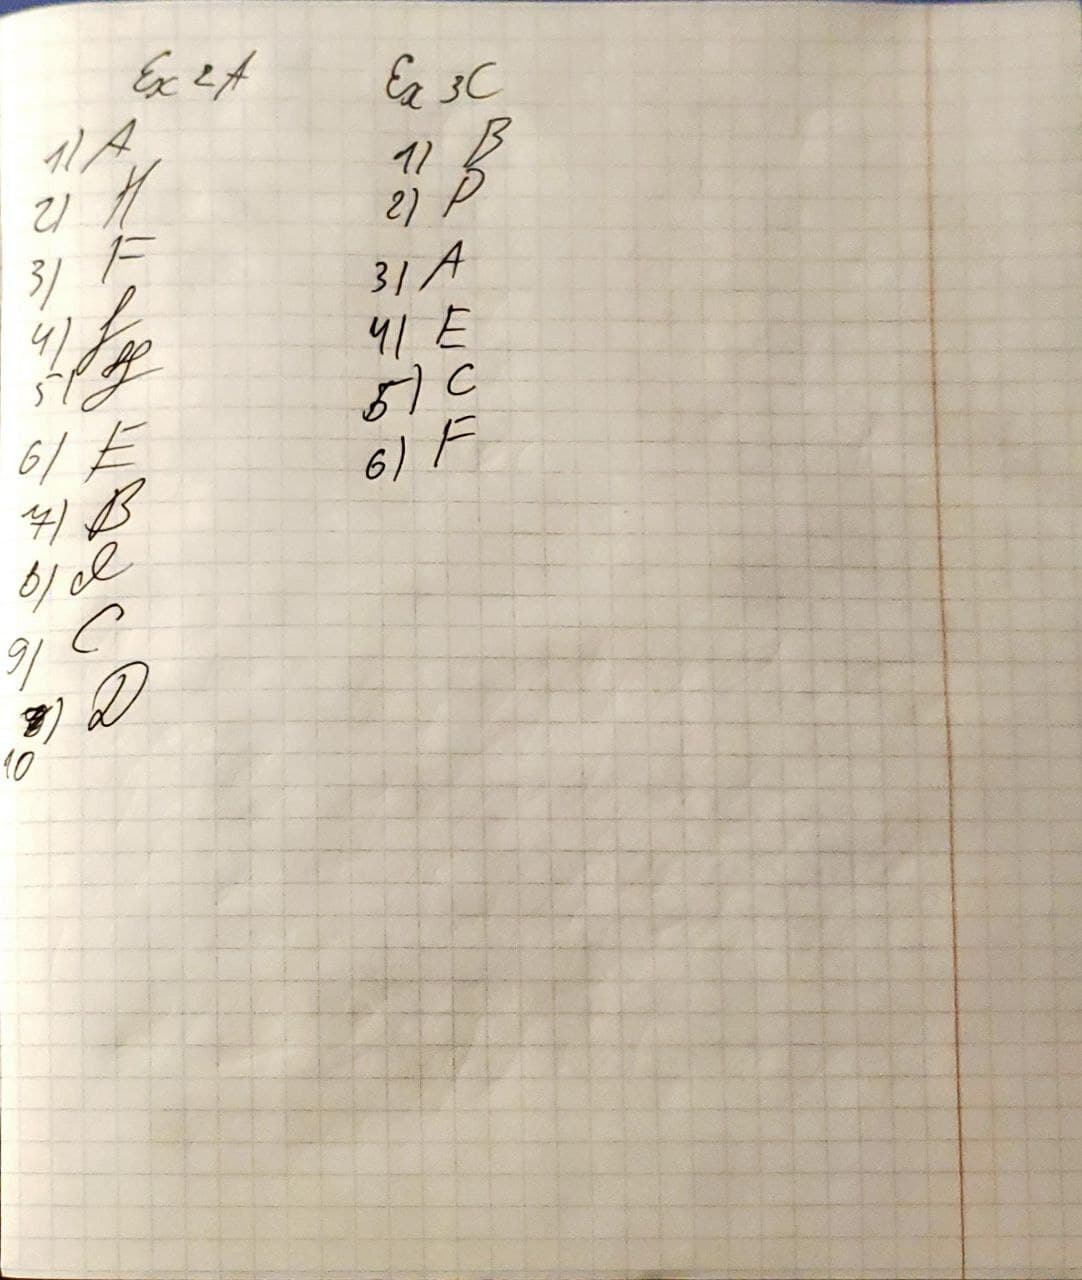 Ex 2A
1) A
2) H
3) F
4) J
5) G
6) E
7) B
8) I
9) C
10) D
Ex 3C
1) B
2) D
3) A
4) E
5) C
6) F